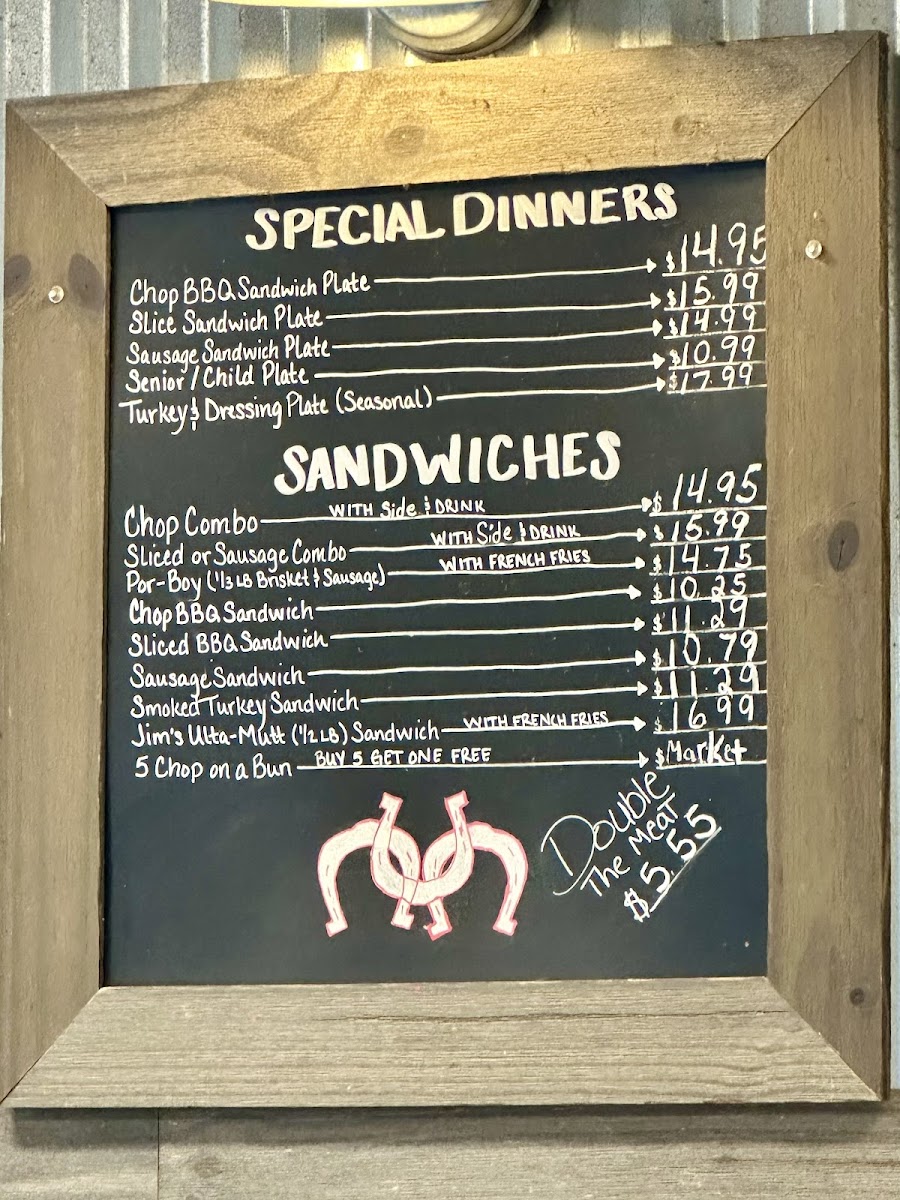 SPECIAL DINNERS
Chop BBQ Sandwich Plate $14.95
Slice Sandwich Plate $15.99
Sausage Sandwich Plate $14.99
Senior / Child Plate $10.99
Turkey & Dressing Plate (Seasonal) $17.99
SANDWICHES
Chop Combo WITH Side & DRINK $14.95
Sliced or Sausage Combo WITH Side & DRINK $15.99
Por-Boy (1/3 LB Brisket & Sausage) WITH FRENCH FRIES $14.75
Chop BBQ Sandwich $10.25
Sliced BBQ Sandwich $11.29
Sausage Sandwich $10.79
Smoked Turkey Sandwich $11.29
Jim's Ulta-Mutt (1/2 LB) Sandwich WITH FRENCH FRIES $16.99
5 Chop on a Bun BUY 5 GET ONE FREE $Market
Double
The Meat
$5.55